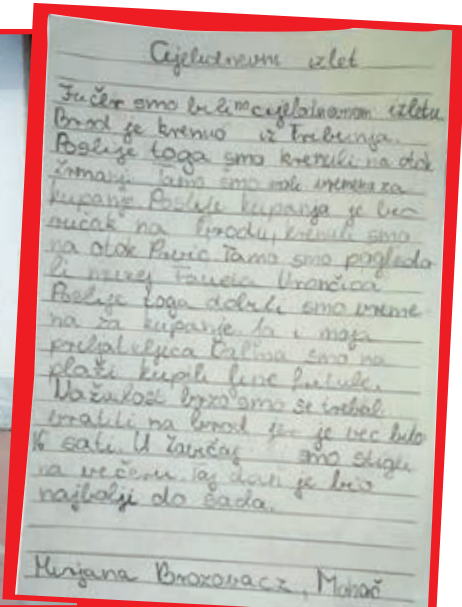 Cjelodnevni izlet
Jučer smo bili na cjelodnevnom izletu.
Brod je krenuo iz Tribunja.
Poslije toga smo krenuli na otok
Tamo smo imali vremena za
kupanje. Poslije kupanja je bio
ručak na brodu, krenuli smo
na otok Prvić. Tamo smo pogleda-
li muzej Fausta Vrančića
Poslije toga dobili smo vreme-
na za kupanje. Ja i moja
prijateljica smo na
plaži kupili fine fritule.
Nažalost brzo smo se trebali
vratiti na brod jer je već bilo
16 sati. U smo stigli
na večeru. Taj dan je bio
najbolji do sada.
Mirjana Brozovacz, Mohač